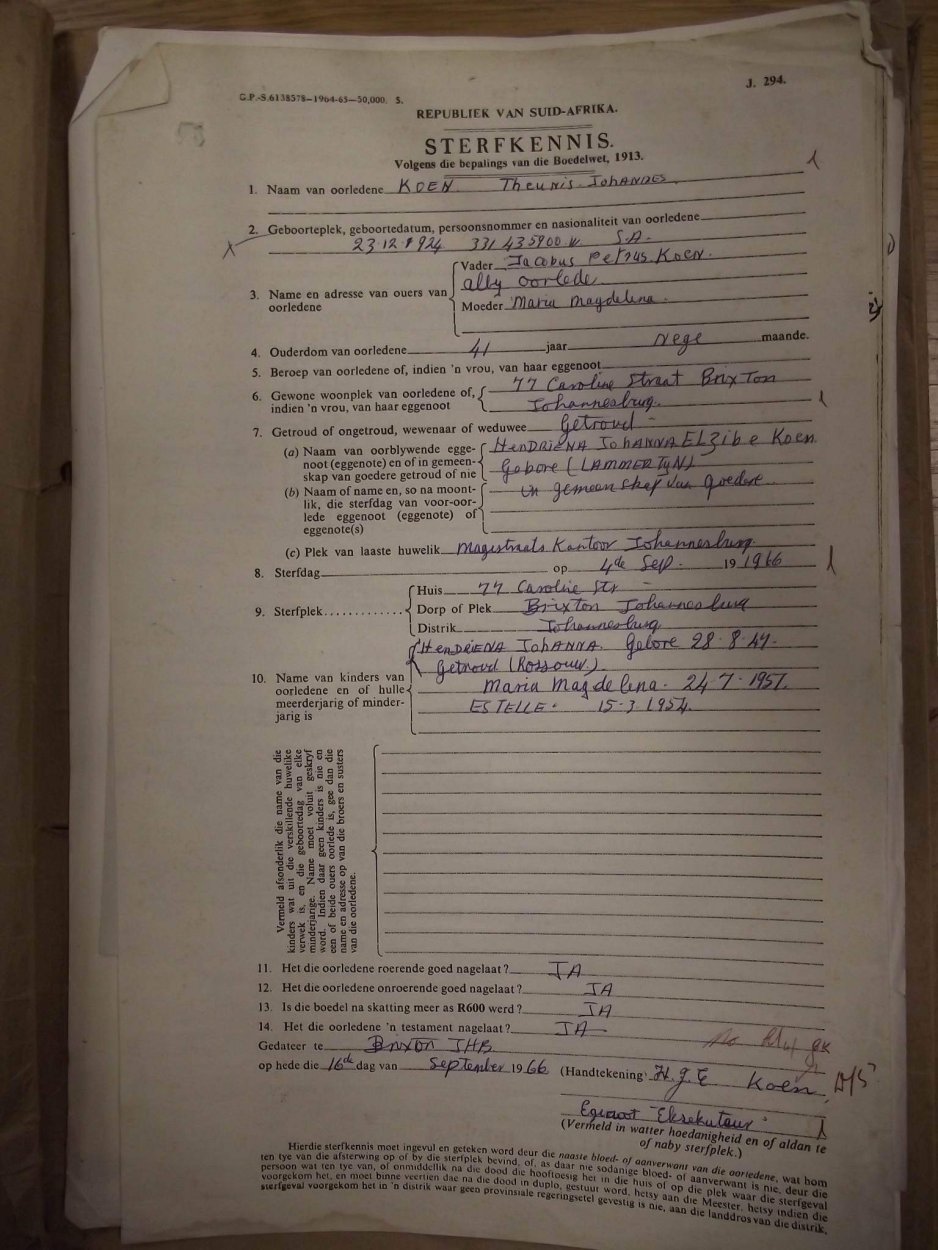 G.P.-S.6138578—1964-65—50,000. S.
J. 294.
REPUBLIEK VAN SUID-AFRIKA.
STERFKENNIS.
Volgens die bepalings van die Boedelwet, 1913.
1. Naam van oorledene KOEN Theunis JOHANDES.
2. Geboorteplek, geboortedatum, persoonsnommer en nasionaliteit van oorledene
X 23.12.1924 331 435900 W S.A.
3. Name en adresse van ouers van oorledene
Vader Jacobus Petrus Koen.
alby oorlede
Moeder Maria Magdelena.
4. Ouderdom van oorledene 41 jaar nege maande.
5. Beroep van oorledene of, indien 'n vrou, van haar eggenoot
6. Gewone woonplek van oorledene of, 77 Caroline Straat Brixton
indien 'n vrou, van haar eggenoot Johannesburg.
7. Getroud of ongetroud, wewenaar of weduwee Getroud -
(a) Naam van oorblywende egge- HENDRIENA JOHANNA ELZIBE Koen
noot (eggenote) en of in gemeen- Gebore (LAMMERTYN)
skap van goedere getroud of nie
in gemeenskap van goedere
(b) Naam of name en, so na moont-
lik, die sterfdag van voor-oor-
lede eggenoot (eggenote) of
eggenote(s)
(c) Plek van laaste huwelik Magistraats Kantoor Johannesburg.
8. Sterfdag op 4de Sep. 19 1966
9. Sterfplek............
Huis 77 Caroline Str -
Dorp of Plek Brixton Johannesburg
Distrik Johannesburg
HENDRIENA JOHANNA. Gebore 28-8-47.
Getroud (Rossouw.)
10. Name van kinders van
oorledene en of hulle Maria Magdelena. 24-7-1951.
meerderjarig of minder- ESTELLE. 15-3 1954.
jarig is
Vermeld afsonderlik die name van die
kinders wat uit die verskillende huwelike
verwek is, en die geboortedag van elke
minderjarige. Name moet voluit geskryf
word. Indien daar geen kinders is nie en
een of beide ouers oorlede is, gee dan die
name en adresse op van die broers en susters
van die oorledene.
11. Het die oorledene roerende goed nagelaat? JA
12. Het die oorledene onroerende goed nagelaat? JA
13. Is die boedel na skatting meer as R600 werd? JA
14. Het die oorledene 'n testament nagelaat? JA
Gedateer te Brixton JHB
op hede die 16de dag van September 1966 (Handtekening) H.J.E Koen
Eggenoot Eksekuteur
(Vermeld in watter hoedanigheid en of aldan te
of naby sterfplek.)
Hierdie sterfkennis moet ingevul en geteken word deur die naaste bloed- of aanverwant van die oorledene, wat hom
ten tye van die afsterwing op of by die sterfplek bevind, of, as daar nie sodanige bloed- of aanverwant is nie, deur die
persoon wat ten tye van, of onmiddellik na die dood die hooftoesig het in die huis of op die plek waar die sterfgeval
voorgekom het, en moet binne veertien dae na die dood in duplo, gestuur word, hetsy aan die Meester, hetsy indien die
sterfgeval voorgekom het in 'n distrik waar geen provinsiale regeringsetel gevestig is nie, aan die landdros van die distrik,